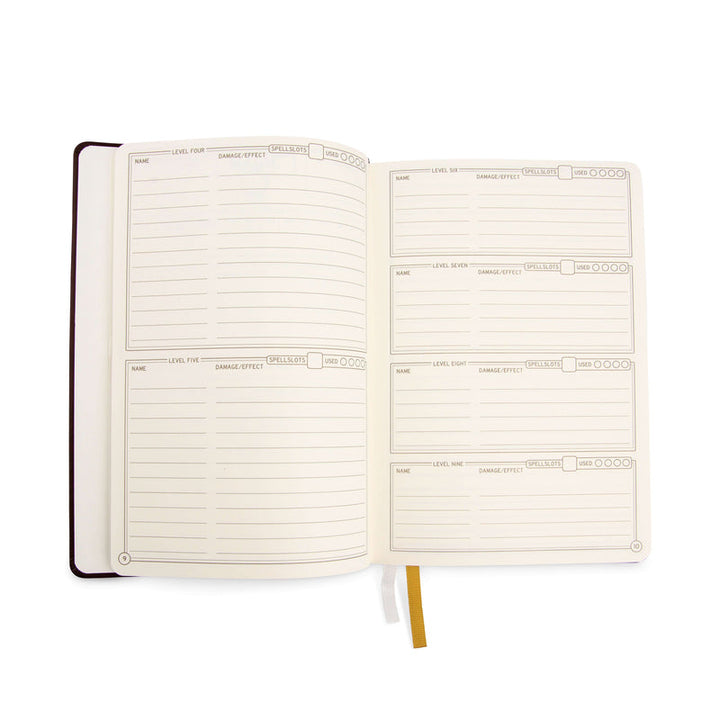 LEVEL FOUR SPELLSLOTS USED
NAME DAMAGE/EFFECT
LEVEL FIVE SPELLSLOTS USED
NAME DAMAGE/EFFECT
9
LEVEL SIX SPELLSLOTS USED
NAME DAMAGE/EFFECT
LEVEL SEVEN SPELLSLOTS USED
NAME DAMAGE/EFFECT
LEVEL EIGHT SPELLSLOTS USED
NAME DAMAGE/EFFECT
LEVEL NINE SPELLSLOTS USED
NAME DAMAGE/EFFECT
10